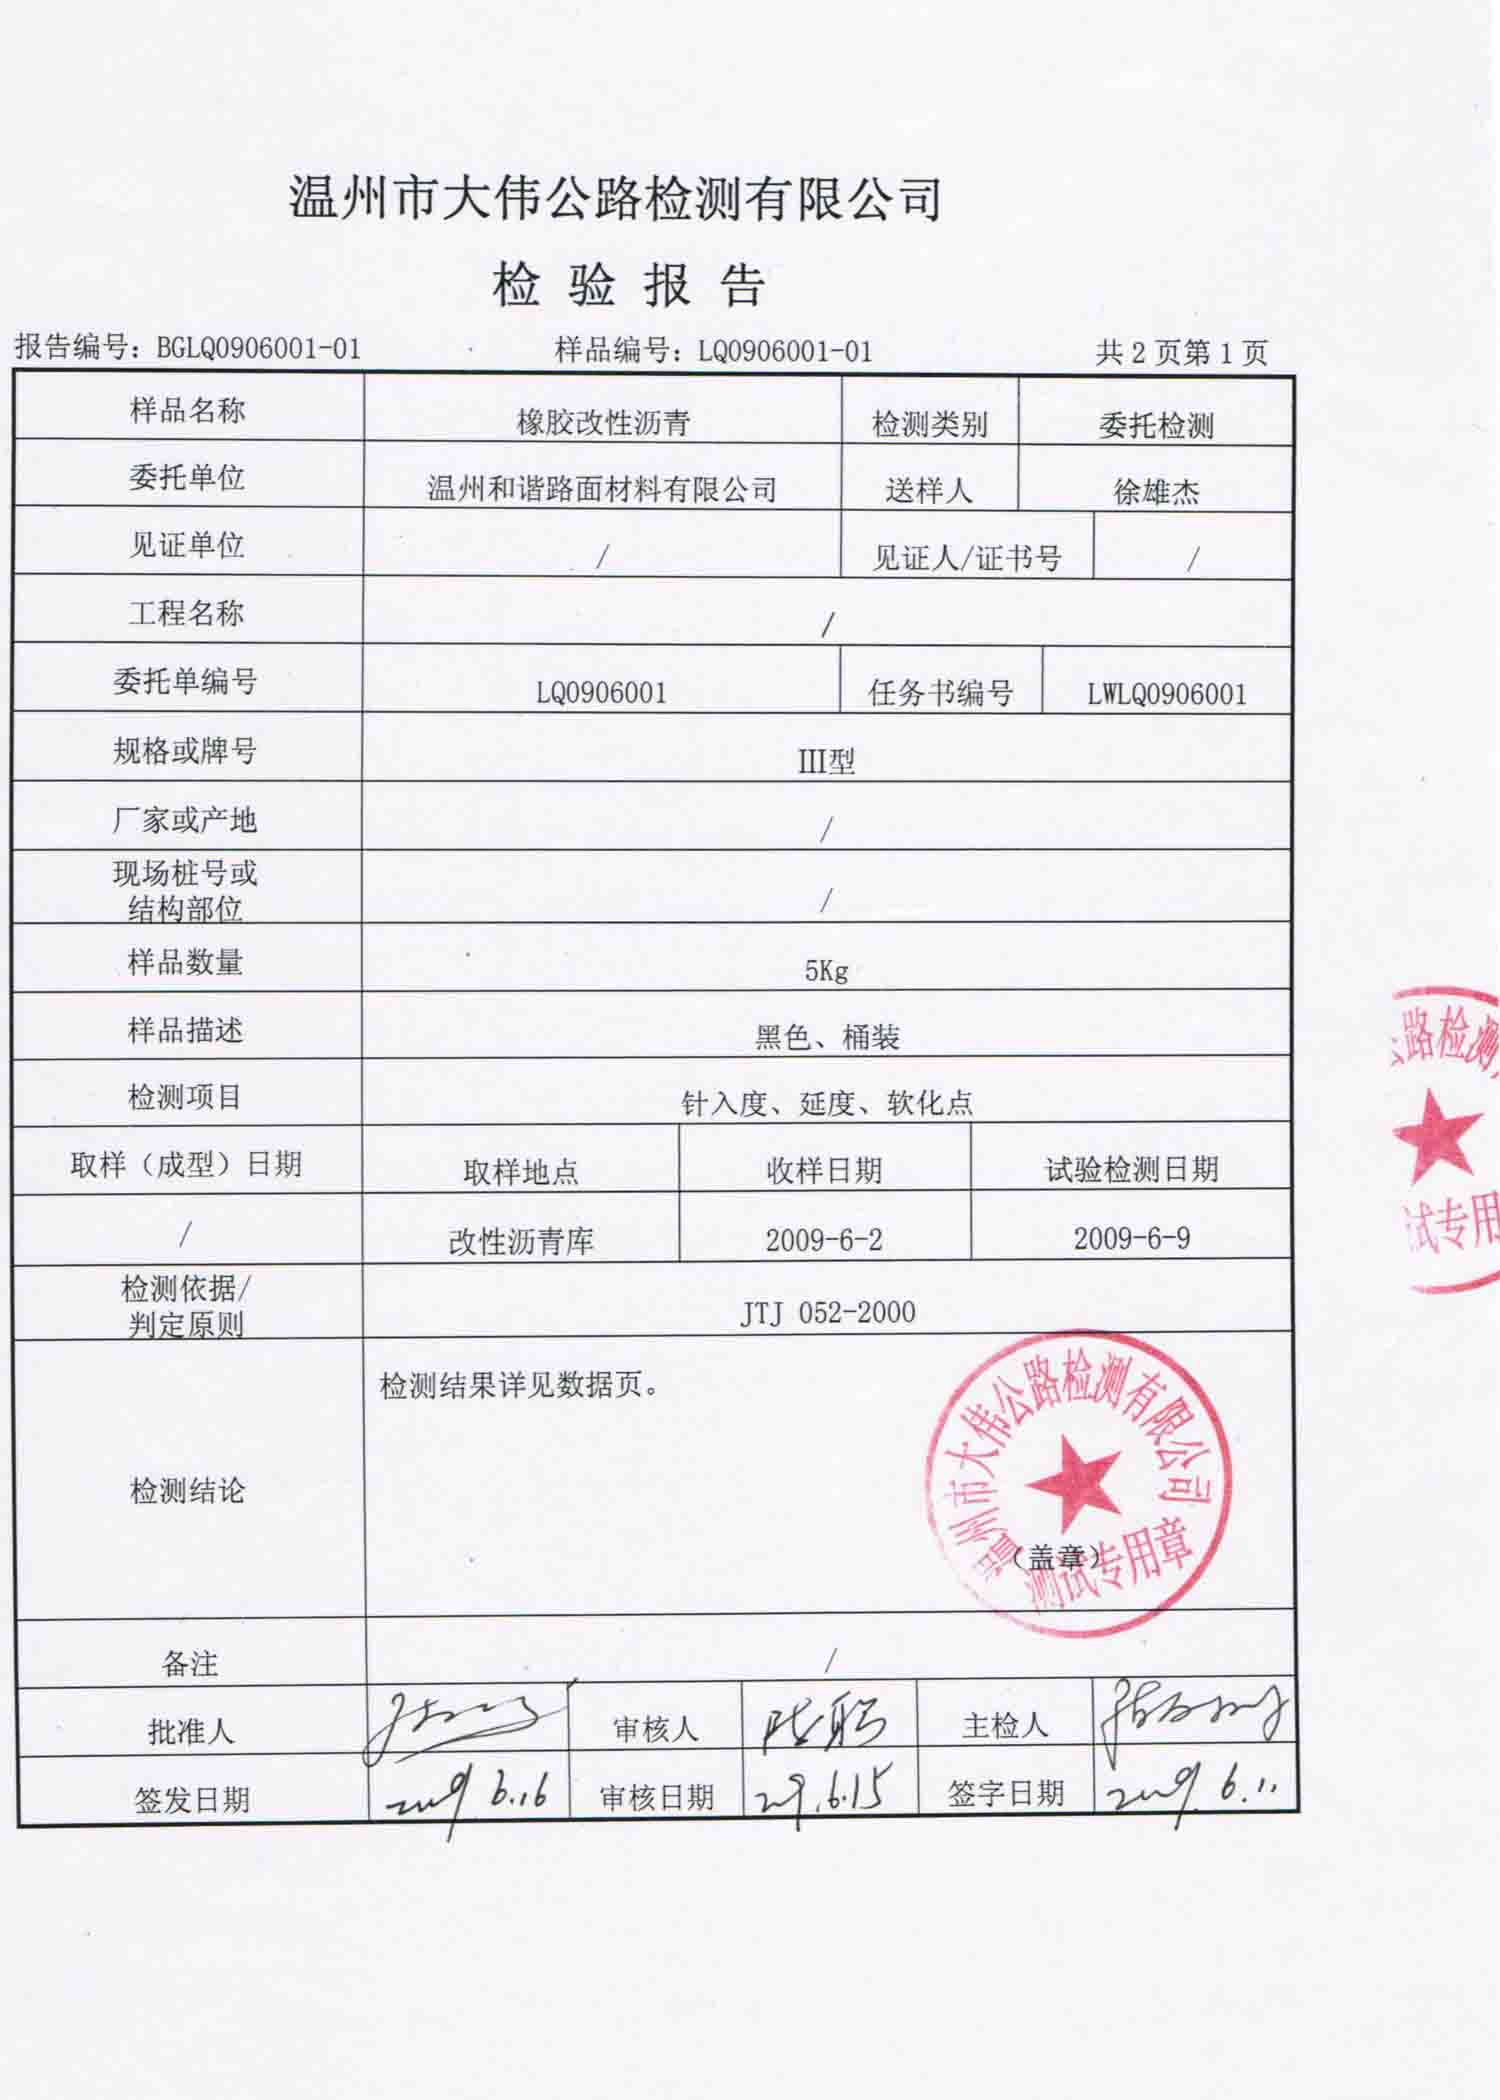 温州市大伟公路检测有限公司
检 验 报 告
报告编号：BGLQ0906001-01 样品编号：LQ0906001-01 共 2 页第 1 页
样品名称 橡胶改性沥青 检测类别 委托检测
委托单位 温州和谐路面材料有限公司 送样人 徐雄杰
见证单位 / 见证人/证书号 /
工程名称 /
委托单编号 LQ0906001 任务书编号 LWLQ0906001
规格或牌号 III型
厂家或产地 /
现场桩号或
结构部位 /
样品数量 5Kg
样品描述 黑色、桶装
检测项目 针入度、延度、软化点
取样（成型）日期 取样地点 收样日期 试验检测日期
/ 改性沥青库 2009-6-2 2009-6-9
检测依据/
判定原则 JTJ 052-2000
检测结果详见数据页。
检测结论
（盖章）
温州市大伟公路检测有限公司
测试专用章
公路检测
试专用
备注 /
批准人 审核人 主检人
签发日期 2009.6.16 审核日期 2009.6.15 签字日期 2009.6.11